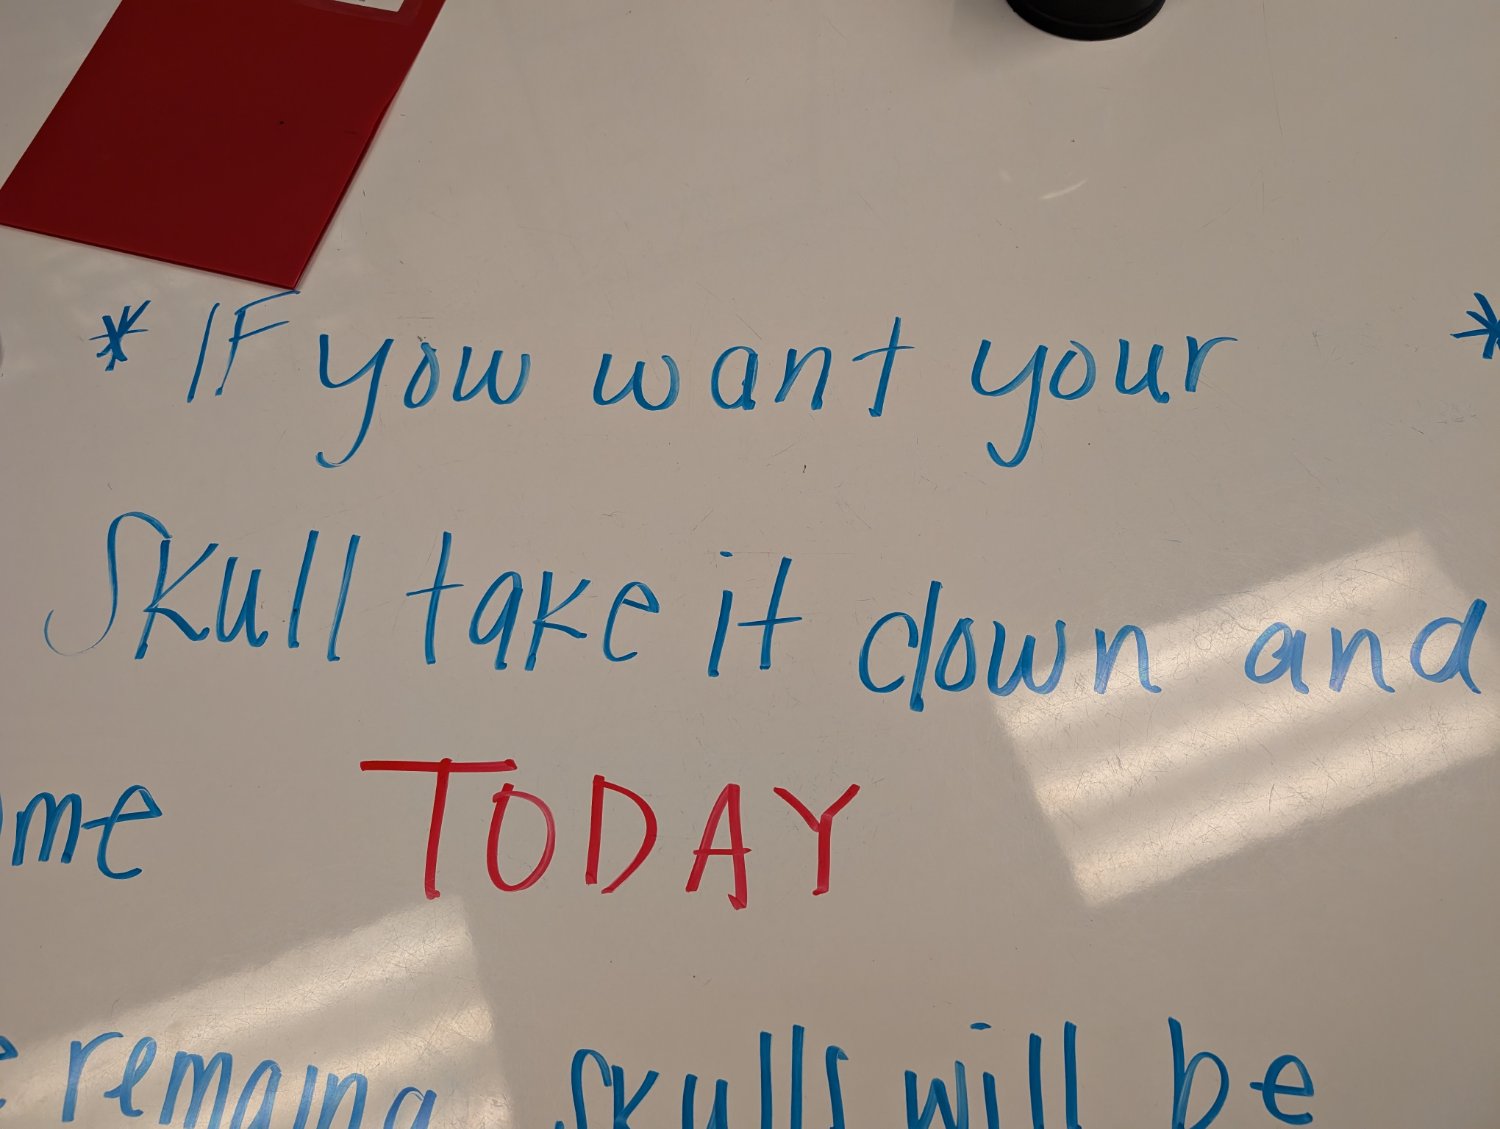 * If you want your *
Skull take it down and
TODAY
remaing skulls will be